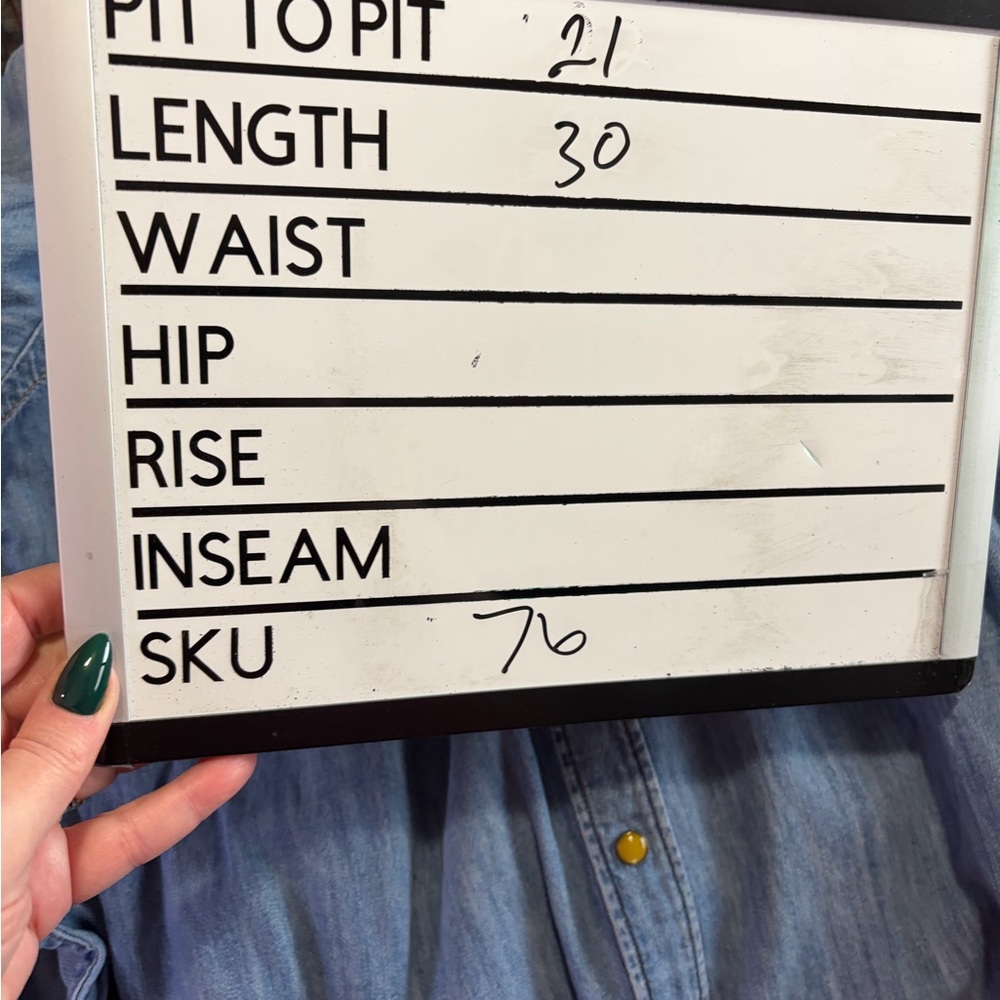 PIT TO PIT 21
LENGTH 30
WAIST
HIP
RISE
INSEAM
SKU 76